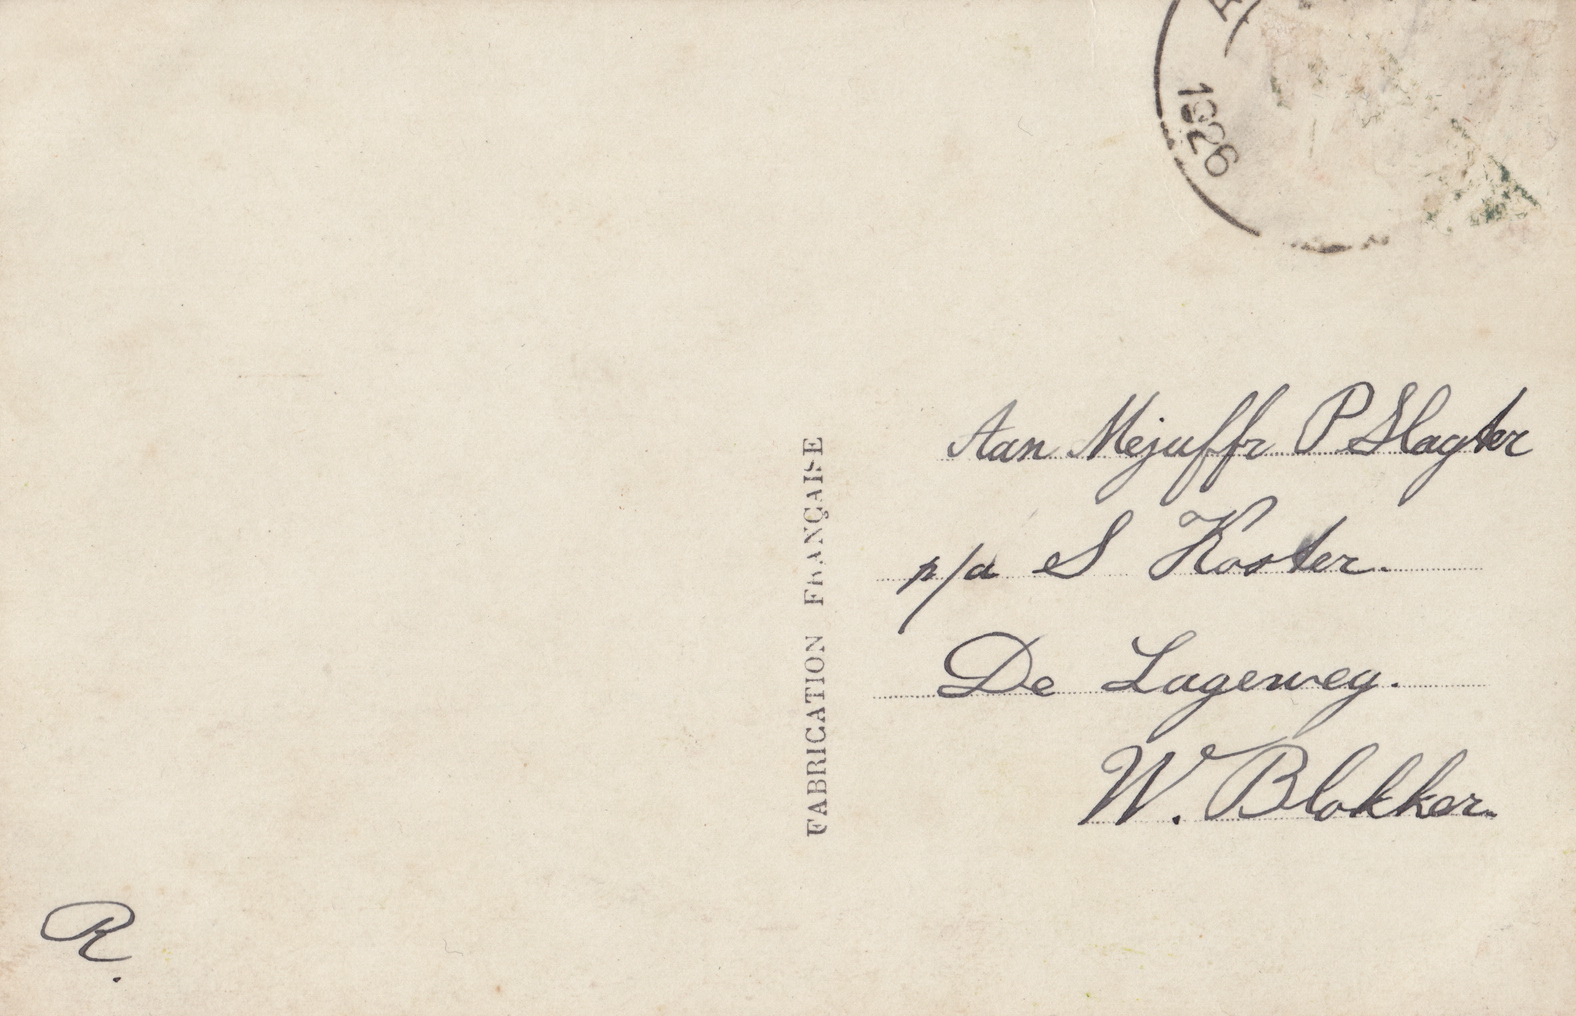 1926
Aan Mejuffr P Slagter
p/a S Koster.
De Lageweg.
W. Blokker.
FABRICATION FRANÇAISE
R.